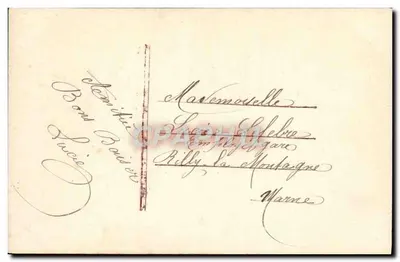 Amitiés
Bons Baiser
Lucie
Mademoiselle
Lefebre
Rilly la Montagne
Marne